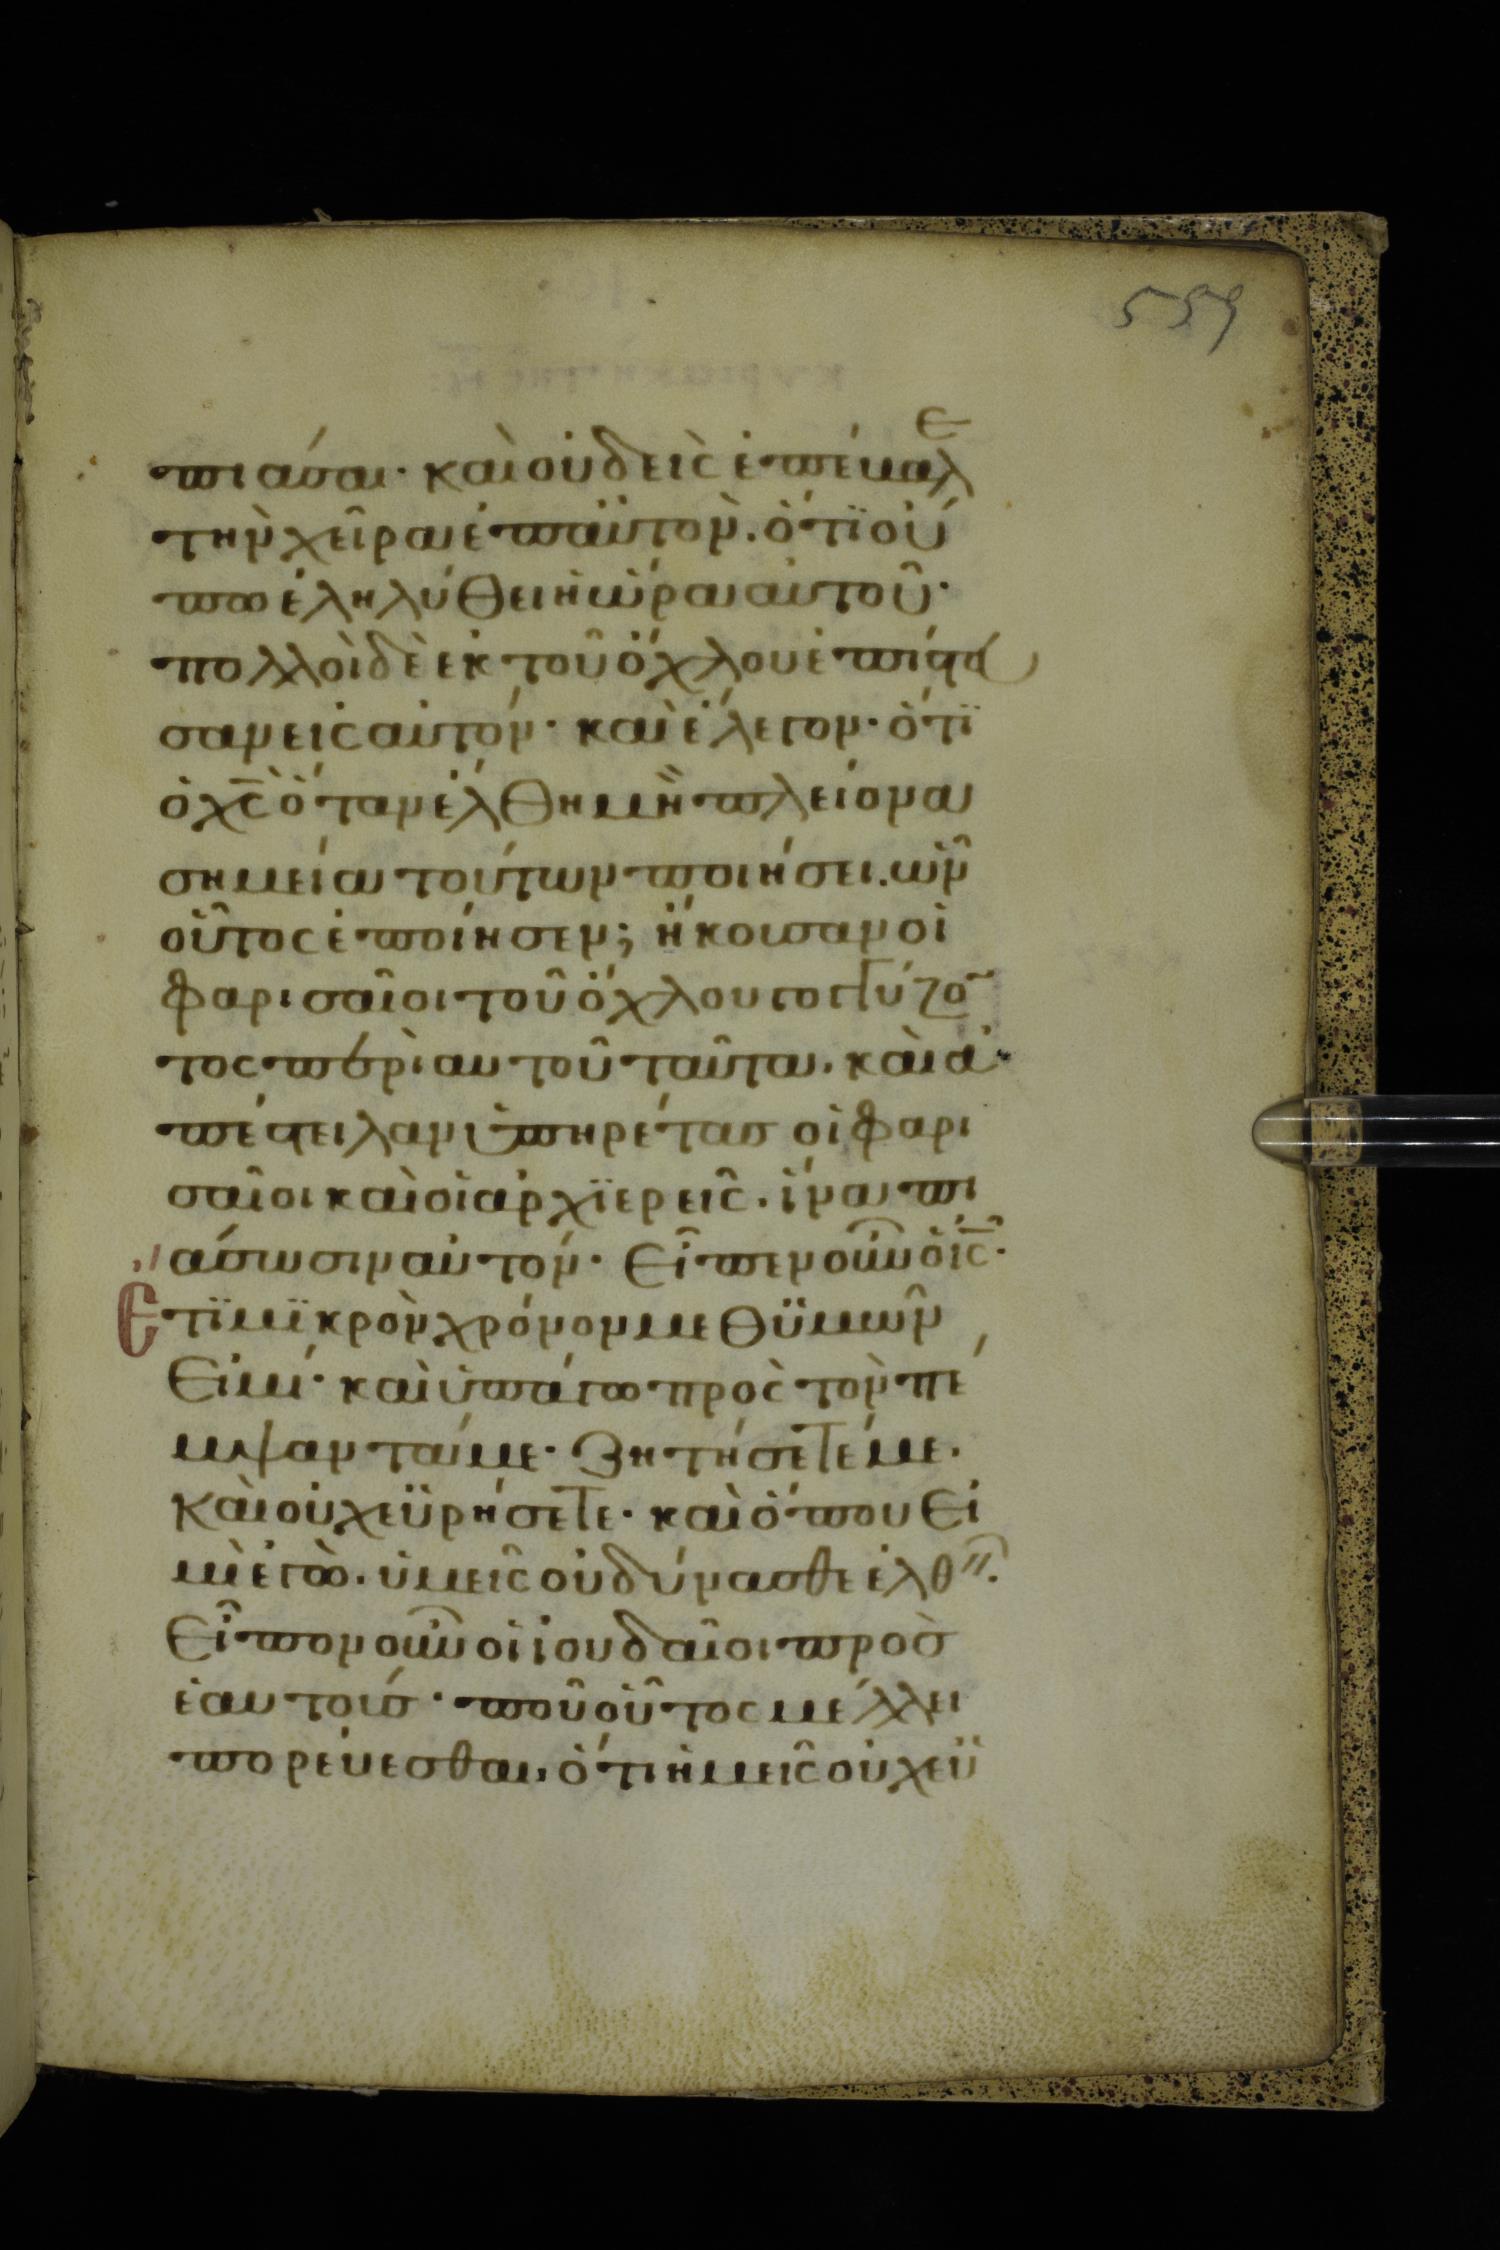 559
πιάσαι· καὶ οὐδεὶς ἐπέβαλε
τὴν χεῖρα ἐπ' αὐτὸν. ὅτϊ οὔ
πω ἐληλύθει ἡ ὥρα αὐτοῦ·
πολλοὶ δὲ ἐκ τοῦ ὄχλου ἐπίστευ
σαν εἰς αὐτόν· καὶ ἔλεγον· ὅτϊ
ὁ χς ὅταν ἔλθη μὴ πλείονα
σημεία τούτων ποιήσει. ὧν
οὗτος ἐποίησεν; ἤκουσαν οἱ
φαρισαῖοι τοῦ ὄχλου γογγύζον
τος περὶ αυτοῦ ταῦτα. καὶ ἀ
πέστειλαν ὑπηρέτας οἱ φαρι
σαῖοι καὶ οἱ αρχϊερεις. ἵνα πι
άσωσιν αὐτόν· Εἶπεν οὖν ὁ ις·
Ετϊ μϊκρὸν χρόνον μεθ ϋμῶν
Εἰμί· καὶ ὑπάγω πρὸς τὸν πέ
μψαντά με· Ζητήσετέ με.
Καὶ οὐχ εὑρήσετε· καὶ ὅπου Εἰ
μὶ ἐγὼ. ὑμεῖς οὐ δύνασθε ἐλθεῖν.
Εἶπον οὖν οἱ ϊουδαῖοι πρὸσ
ἑαυτούσ· ποῦ οὗτος μέλλει
πορεύεσθαι, ὅτι ἡμεῖς οὐχ εὑ